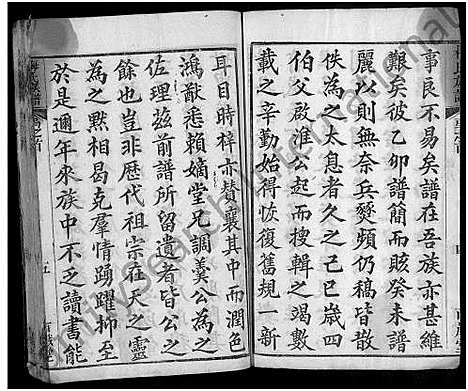 事良不易矣譜在吾族亦甚維
艱矣彼乙卯譜簡而賅癸未譜
麗以則無奈兵燹頻仍稿皆散
佚為之太息者久之己巳歲四
伯父啟淮公起而搜輯之竭數
載之辛勤始得恢復舊規一新
耳目時梓亦贊襄其中而潤色
鴻猷悉賴嫡堂兄調羹公為之
佐理茲前譜所留遺者皆公之
餘也豈非歷代祖宗在天之靈
為之默相曷克羣情踴躍抑至
於是邇年來族中不乏讀書能
五